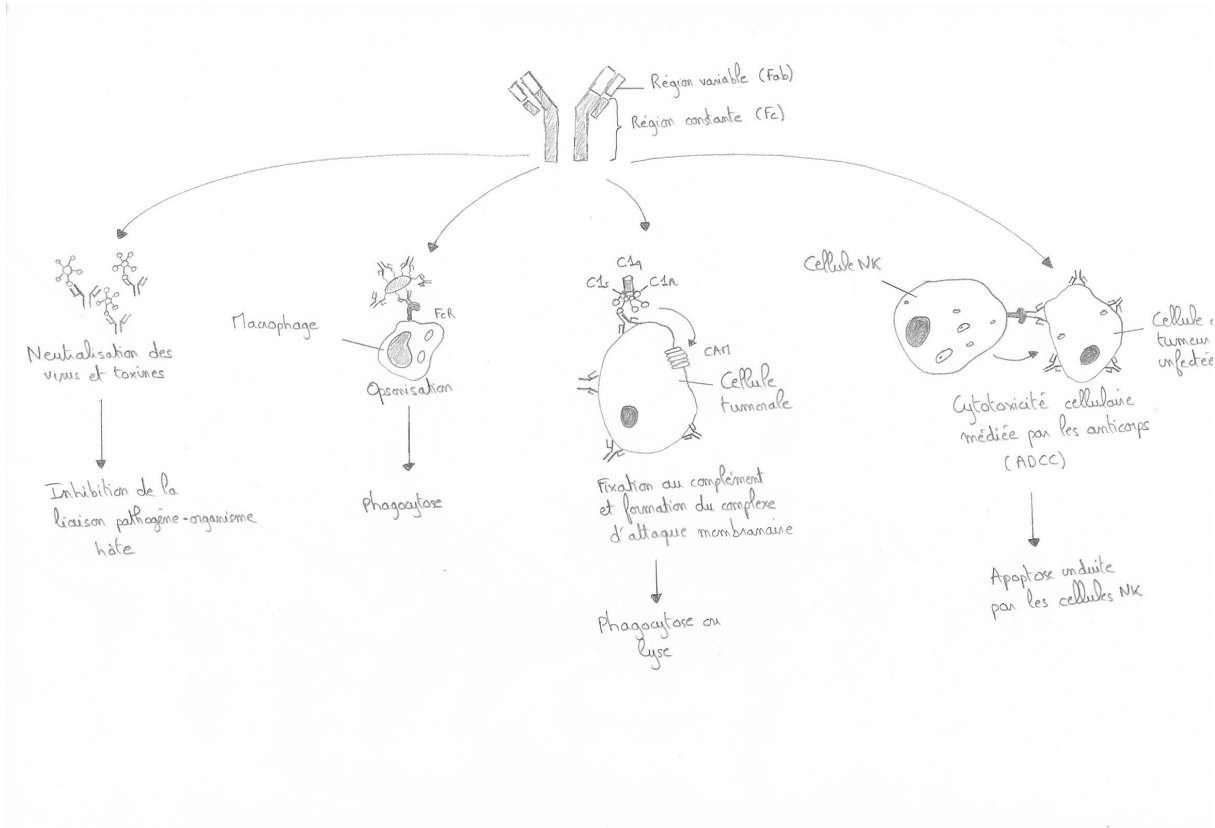 Région variable (Fab)
Région constante (Fc)
Neutralisation des
virus et toxines
Inhibition de la
liaison pathogène-organisme
hôte
Macrophage
FcR
Opsonisation
Phagocytose
C1q
C1s
C1r
CAM
Cellule
tumorale
Fixation au complément
et formation du complexe
d'attaque membranaire
Phagocytose ou
lyse
Cellule NK
Cellule
tumeur
infectée
Cytotoxicité cellulaire
médiée par les anticorps
(ADCC)
Apoptose induite
par les cellules NK